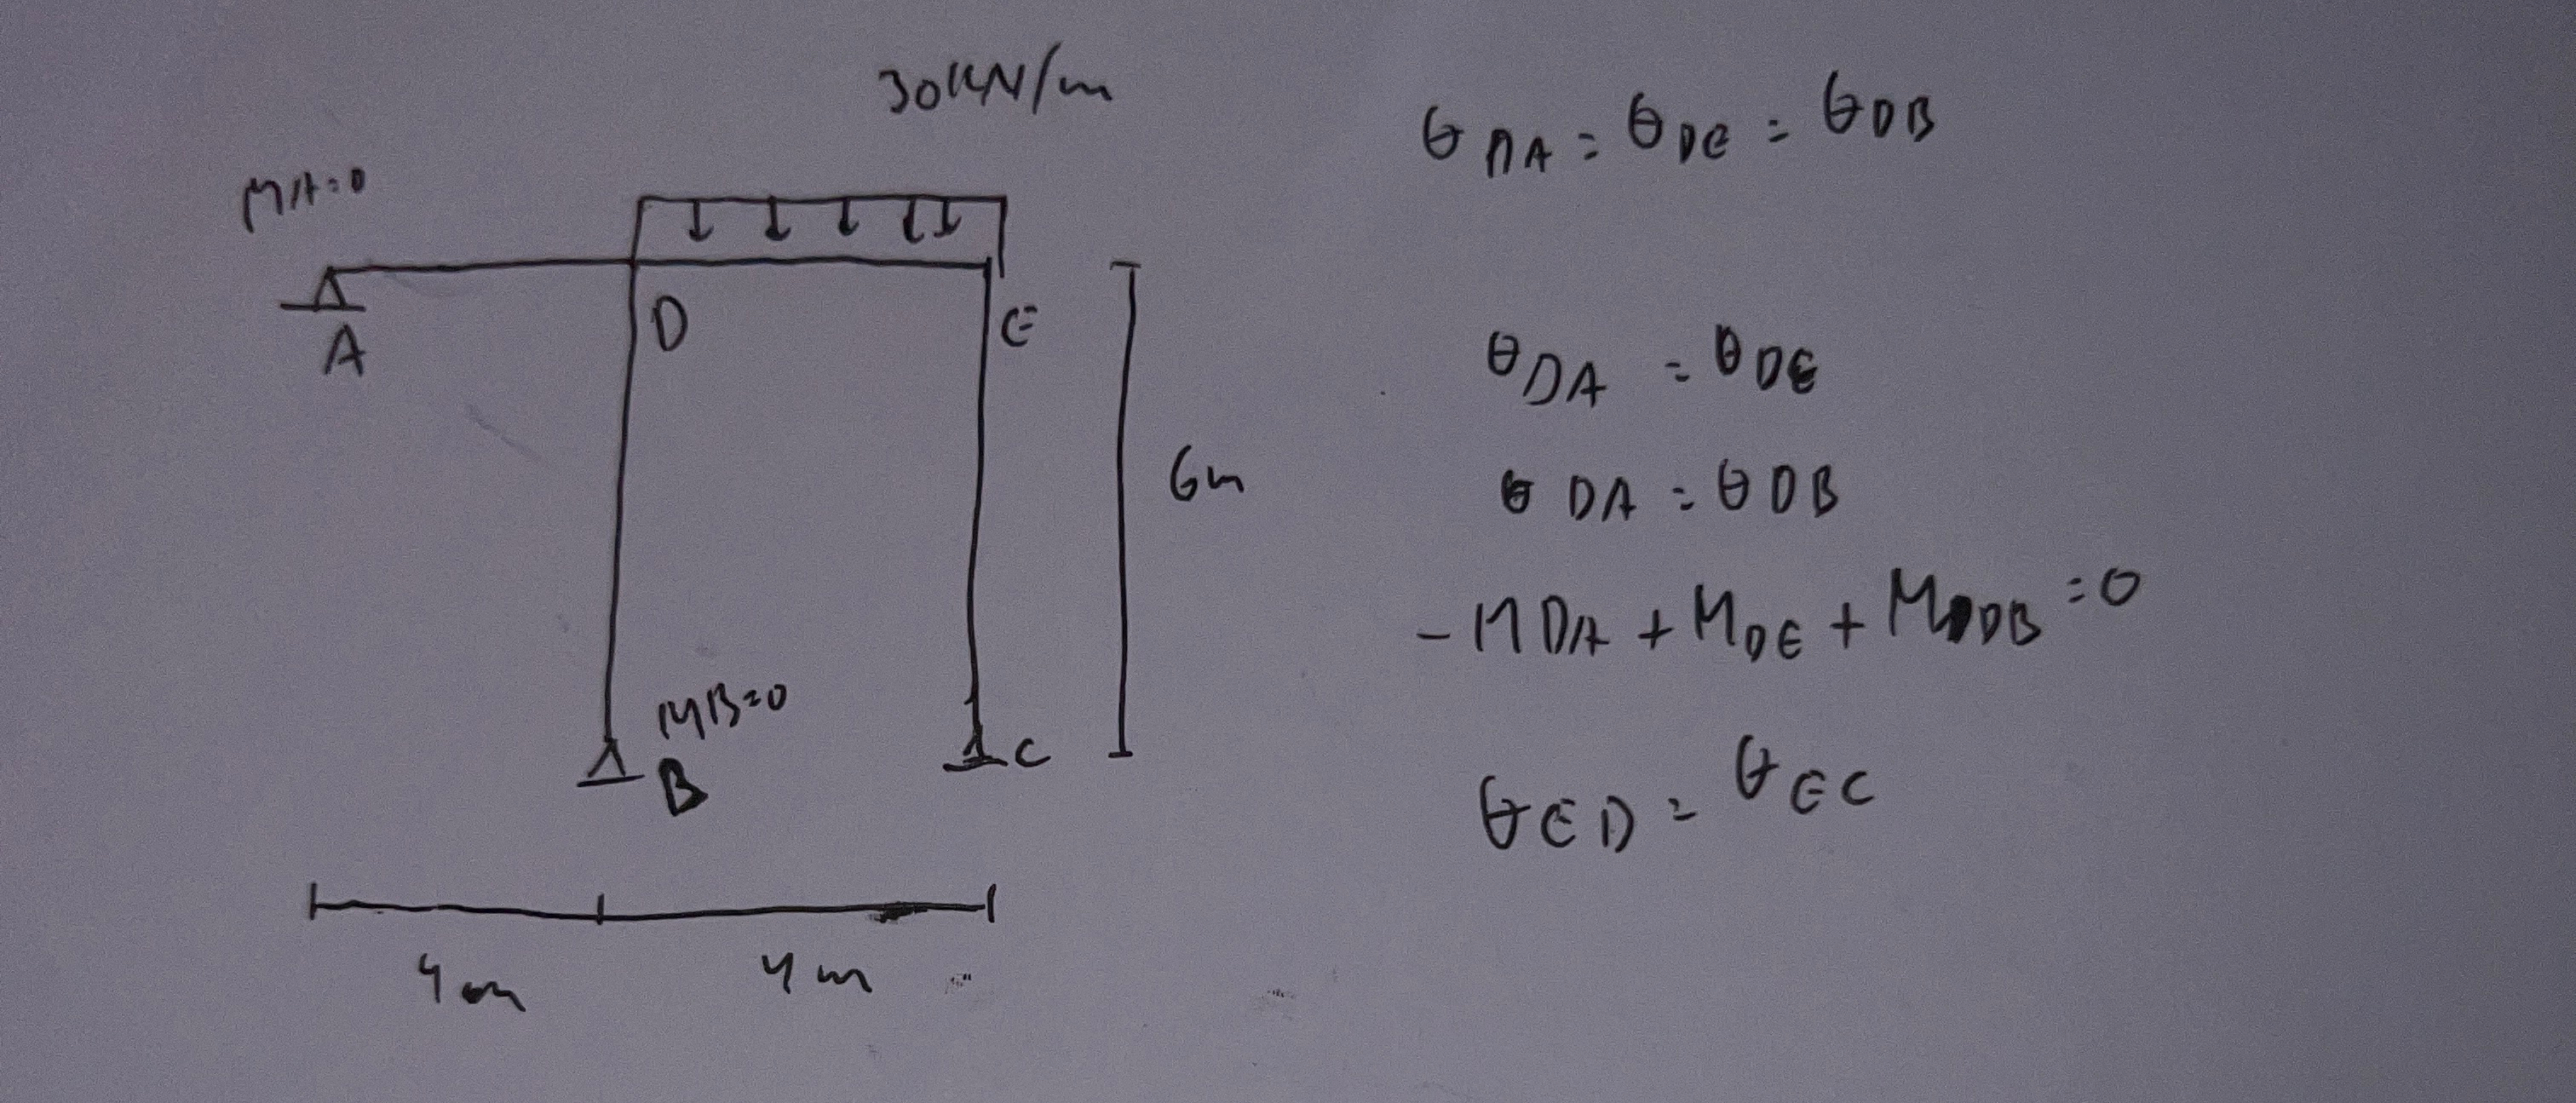 30KN/m
MA=0
A
D
E
6m
MB=0
B
C
4m
4m
θDA = θDE = θDB
θDA = θDE
θDA = θDB
- MDA + MDE + MDB = 0
θED = θEC